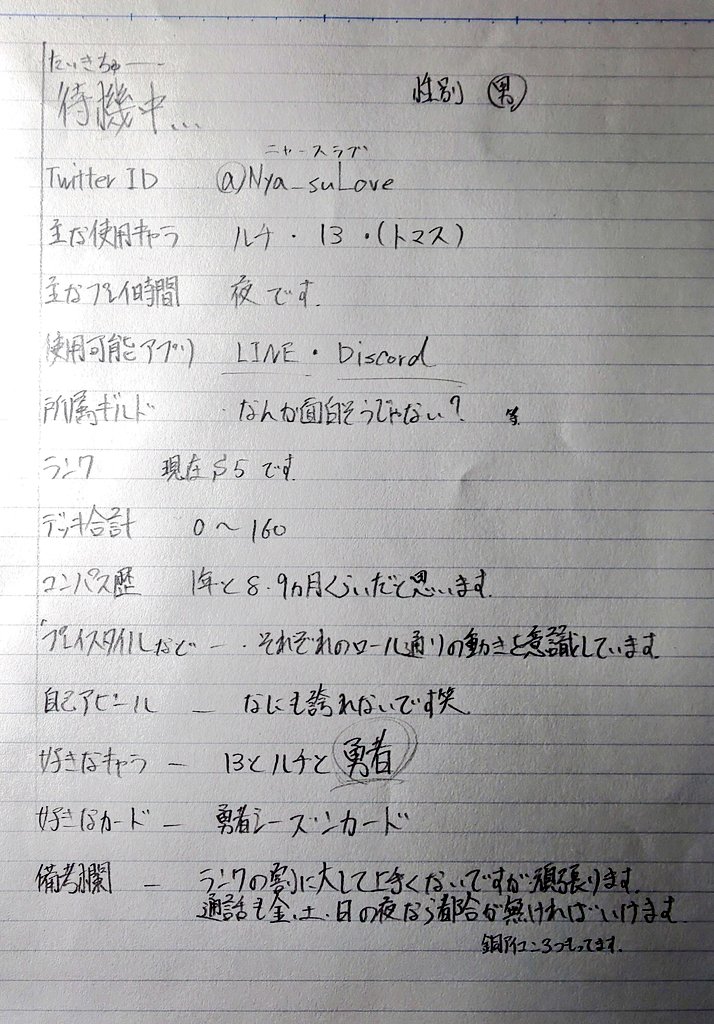 たいきちゅー
待機中...
性別 男
ニャースラブ
Twitter ID @Nya_suLove
主な使用キャラ ルチ・13・(トマス)
主なプレイ時間 夜です.
使用可能アプリ LINE・Discord
所属ギルド ・なんか面白そうじゃない? 等
ランク 現在S5です
デッキ合計 0〜160
コンパス歴 1年と8.9ヵ月くらいだと思います.
プレイスタイルなど ー ・それぞれのロール通りの動きを意識しています.
自己アピール ー なにも誇れないです笑
好きなキャラ ー 13とルチと勇者
好きなカード ー 勇者シーズンカード
備考欄 ー ランクの割に大して上手くないですが頑張ります.
通話も金.土.日の夜なら都合が無ければいけます.
銅アイコン3つもってます.